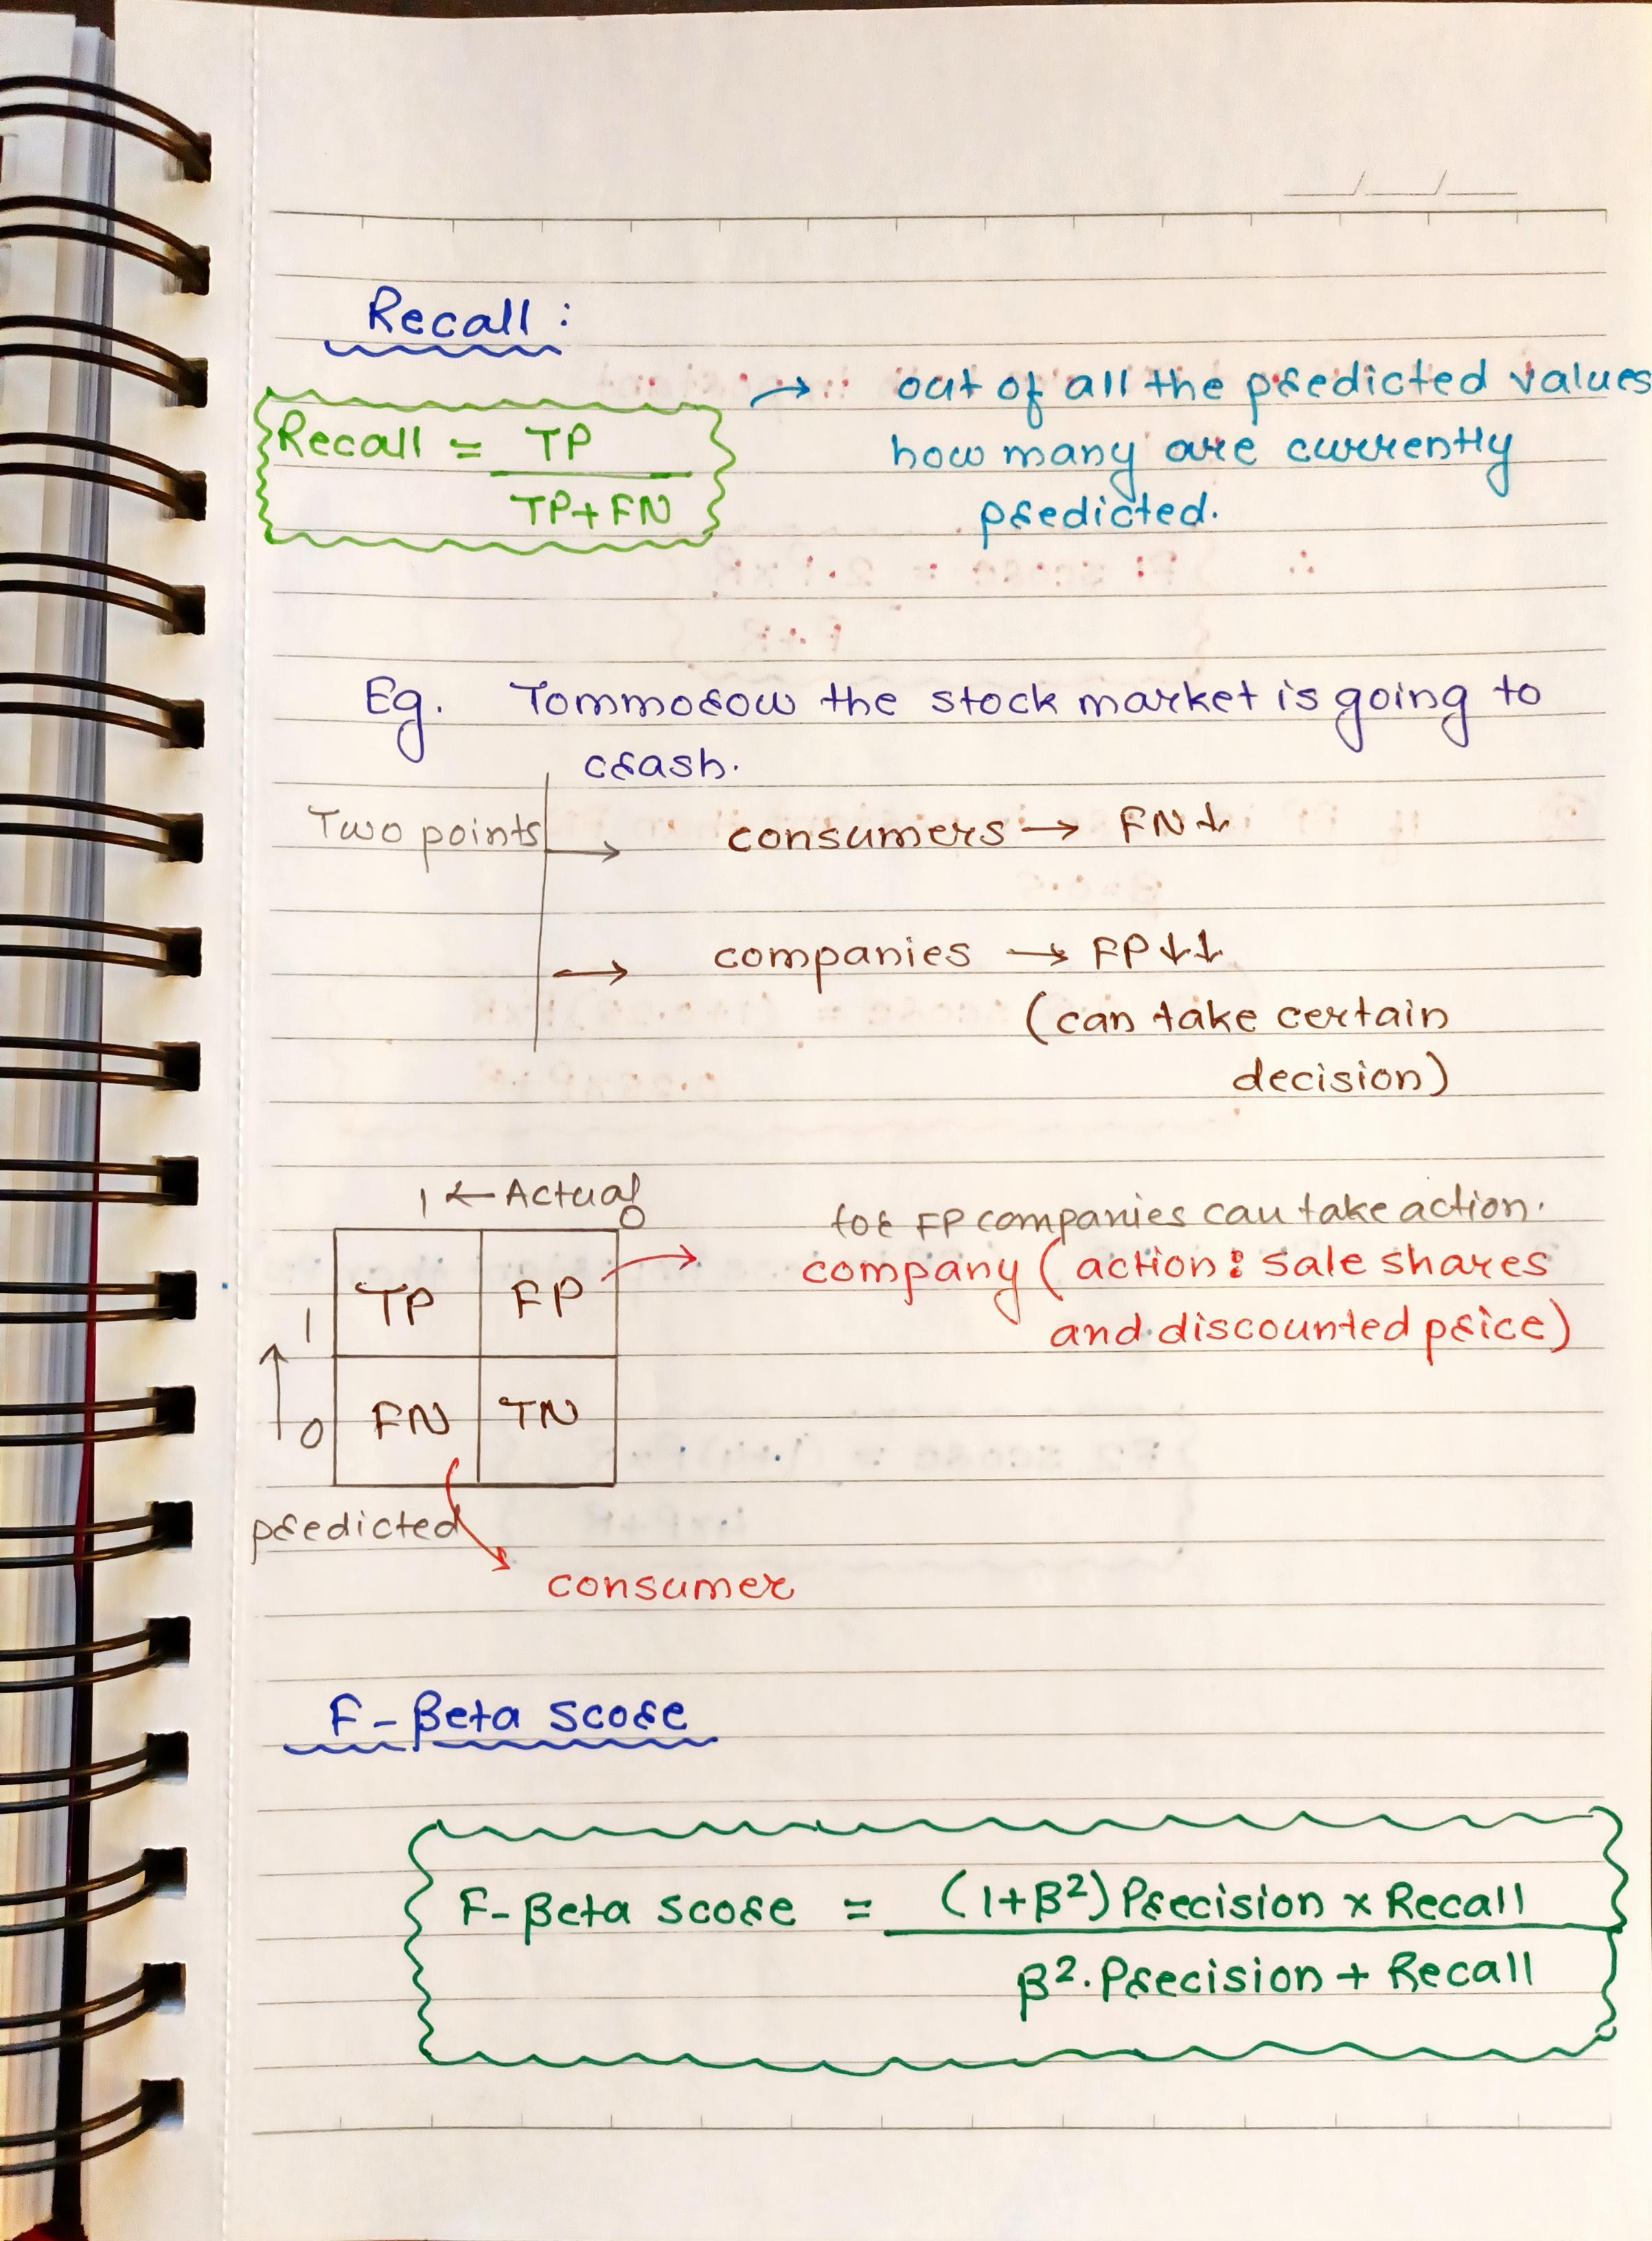 Recall :
Recall = TP
TP+FN
→ out of all the predicted values
how many are currently
predicted.
Eg. Tommorow the stock market is going to
crash.
Two points → consumers → FN↓
→ companies → FP↓↓
(can take certain
decision)
1 ← Actual 0
for FP companies can take action.
TP FP → company ( action : sale shares
and discounted price)
1
↑ 0 FN TN
predicted
consumer
F-Beta score
F-Beta score = (1+β²) Precision x Recall
β². Precision + Recall